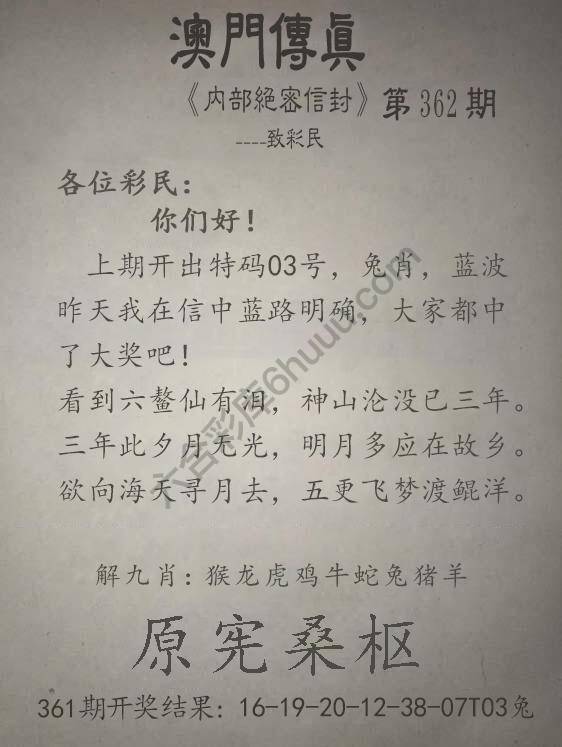 澳門傳眞
《内部絕密信封》第362期
----致彩民
各位彩民：
你们好！
上期开出特码03号，兔肖，蓝波
昨天我在信中蓝路明确，大家都中
了大奖吧！
看到六鳌仙有泪，神山沦没已三年。
三年此夕月无光，明月多应在故乡。
欲向海天寻月去，五更飞梦渡鲲洋。
解九肖：猴龙虎鸡牛蛇兔猪羊
原宪桑枢
361期开奖结果：16-19-20-12-38-07T03兔
六合彩库6huuu.com